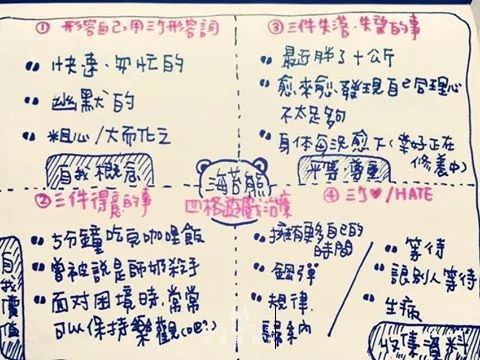 ① 形容自己,用三個形容詞
• 快速、匆忙的
• 幽默的
• 粗心/大而化之
自我概念
③ 三件失落、失望的事
• 最近胖了十公斤
• 愈來愈發現自己同理心
不太足夠
• 身体每況愈下(幸好正在
修養中)
平等/尊重
海苔熊
四格遊戲治療
② 三件得意的事
• 5分鐘吃完咖哩飯
• 曾被說是師奶殺手
• 面對困境時,常常
可以保持樂觀
自我價值
④ 三個♥/HATE
• 擁有更多自己的
時間
• 鋼彈
• 規律
• 歸納
• 等待
• 讓別人等待
• 生病
收集資料